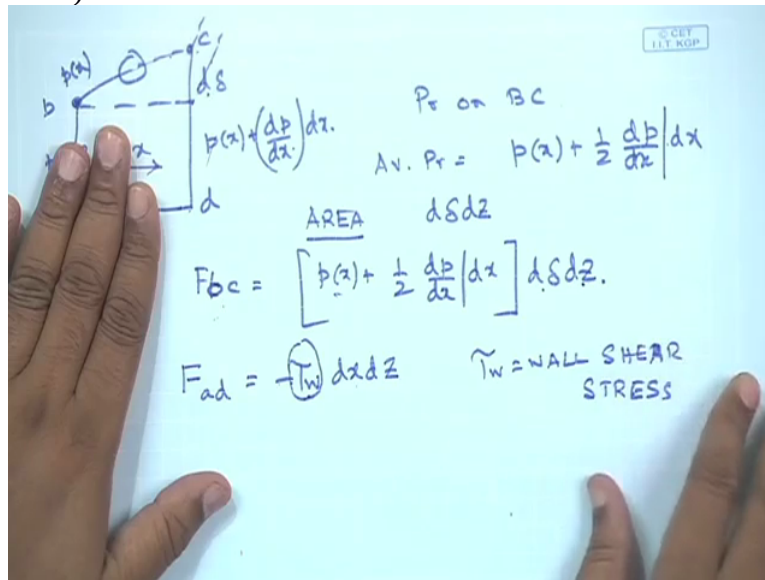 © CET
I.I.T. KGP
c
p(x)
b
dδ
p(x) + (dp/dx) dx.
x
d
Pr on BC
Av. Pr = p(x) + 1/2 dp/dx | dx
AREA dδdz
Fbc = [p(x) + 1/2 dp/dx | dx] dδdz.
Fad = -τw dxdz
τw = WALL SHEAR
STRESS